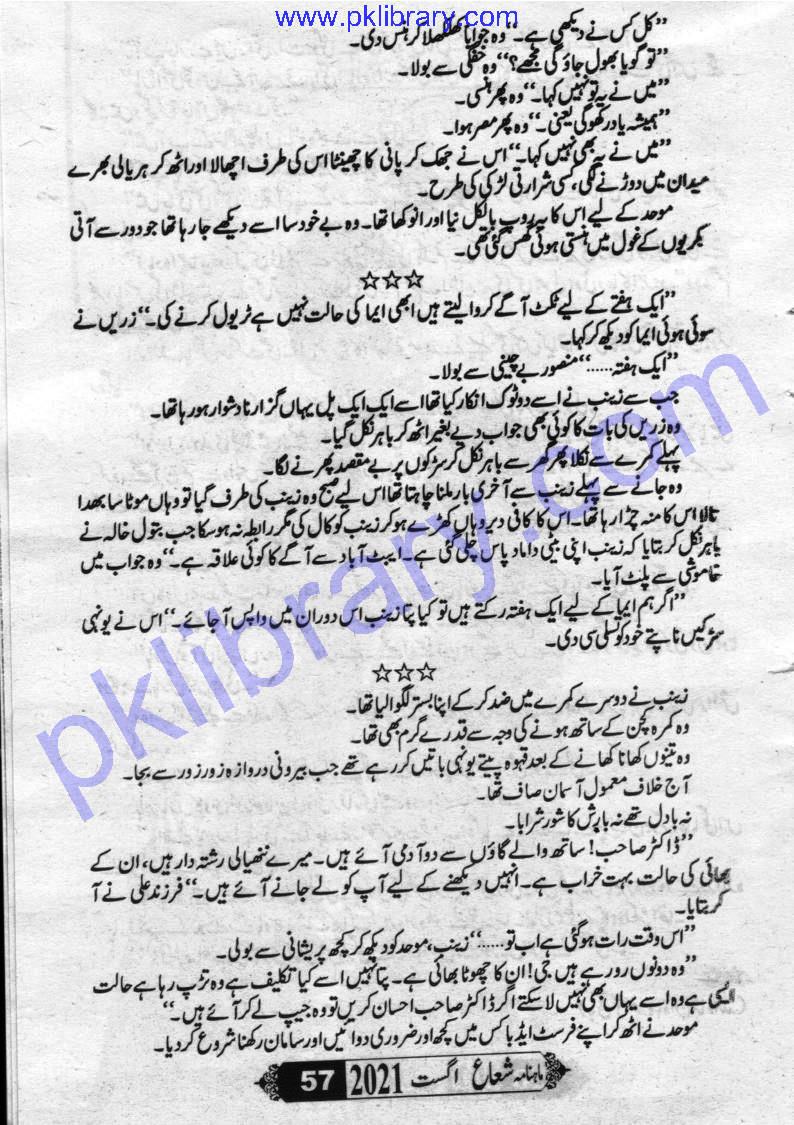 www.pklibrary.com
”کل کس نے دیکھی ہے۔“ وہ جواباً کھلکھلا کر ہنس دی۔
”تو گویا بھول جاؤ گی مجھے؟“ وہ خفگی سے بولا۔
”میں نے یہ تو نہیں کہا۔“ وہ پھر ہنسی۔
”ہمیشہ یاد رکھو گی یعنی۔“ وہ پھر مصر ہوا۔
”میں نے یہ بھی نہیں کہا۔“ اس نے جھک کر پانی کا چھینٹا اس کی طرف اچھالا اور اٹھ کر ہریالی بھرے
میدان میں دوڑنے لگی، کسی شرارتی لڑکی کی طرح۔
موحد کے لیے اس کا یہ روپ بالکل نیا اور انوکھا تھا۔ وہ بے خود سا اسے دیکھے جا رہا تھا جو دور سے آتی
بکریوں کے غول میں ہنستی ہوئی گھس گئی تھی۔
☆☆☆
”ایک ہفتے کے لیے ٹکٹ آگے کروا لیتے ہیں ابھی ایما کی حالت نہیں ہے ٹریول کرنے کی۔“ زریں نے
سوئی ہوئی ایما کو دیکھ کر کہا۔
”ایک ہفتہ......“ منصور بے چینی سے بولا۔
جب سے زینب نے اسے دوٹوک انکار کیا تھا اسے ایک ایک پل یہاں گزارنا دشوار ہو رہا تھا۔
وہ زریں کی بات کا کوئی بھی جواب دیے بغیر اٹھ کر باہر نکل گیا۔
پہلے کمرے سے نکلا پھر گھر سے باہر نکل کر سڑکوں پر بے مقصد پھرنے لگا۔
وہ جانے سے پہلے زینب سے آخری بار ملنا چاہتا تھا اس لیے صبح وہ زینب کی طرف گیا تو وہاں موٹا سا بھدا
تالا اس کا منہ چڑا رہا تھا۔ اس کا کافی دیر وہاں کھڑے ہو کر زینب کو کال کی مگر رابطہ نہ ہو سکا جب بتول خالہ نے
باہر نکل کر بتایا کہ زینب اپنی بیٹی داماد پاس چلی گئی ہے۔ ایبٹ آباد سے آگے کا کوئی علاقہ ہے۔“ وہ جواب میں
خاموشی سے پلٹ آیا۔
”اگر ہم ایما کے لیے ایک ہفتہ رکتے ہیں تو کیا پتا زینب اس دوران میں واپس آ جائے۔“ اس نے یونہی
سڑکیں ناپتے خود کو تسلی سی دی۔
☆☆☆
زینب نے دوسرے کمرے میں ضد کر کے اپنا بستر لگوا لیا تھا۔
وہ کمرہ کچن کے ساتھ ہونے کی وجہ سے قدرے گرم بھی تھا۔
وہ تینوں کھانا کھانے کے بعد قہوہ پیتے یونہی باتیں کر رہے تھے جب بیرونی دروازہ زور زور سے بجا۔
آج خلاف معمول آسمان صاف تھا۔
نہ بادل تھے نہ بارش کا شور شرابا۔
”ڈاکٹر صاحب! ساتھ والے گاؤں سے دو آدمی آئے ہیں۔ میرے ننھیالی رشتہ دار ہیں، ان کے
بھائی کی حالت بہت خراب ہے۔ انہیں دیکھنے کے لیے آپ کو لے جانے آئے ہیں۔“ فرزند علی نے آ
کر بتایا۔
”اس وقت رات ہو گئی ہے اب تو......“ زینب، موحد کو دیکھ کر کچھ پریشانی سے بولی۔
”وہ دونوں رو رہے ہیں جی! ان کا چھوٹا بھائی ہے۔ پتا نہیں اسے کیا تکلیف ہے وہ تڑپ رہا ہے حالت
ایسی ہے وہ اسے یہاں بھی نہیں لا سکتے اگر ڈاکٹر صاحب احسان کریں تو وہ جیپ لے کر آئے ہیں۔“
موحد نے اٹھ کر اپنے فرسٹ ایڈ باکس میں کچھ اور ضروری دوائیں اور سامان رکھنا شروع کر دیا۔
ماہنامہ شعاع اگست 2021 57
pklibrary.com